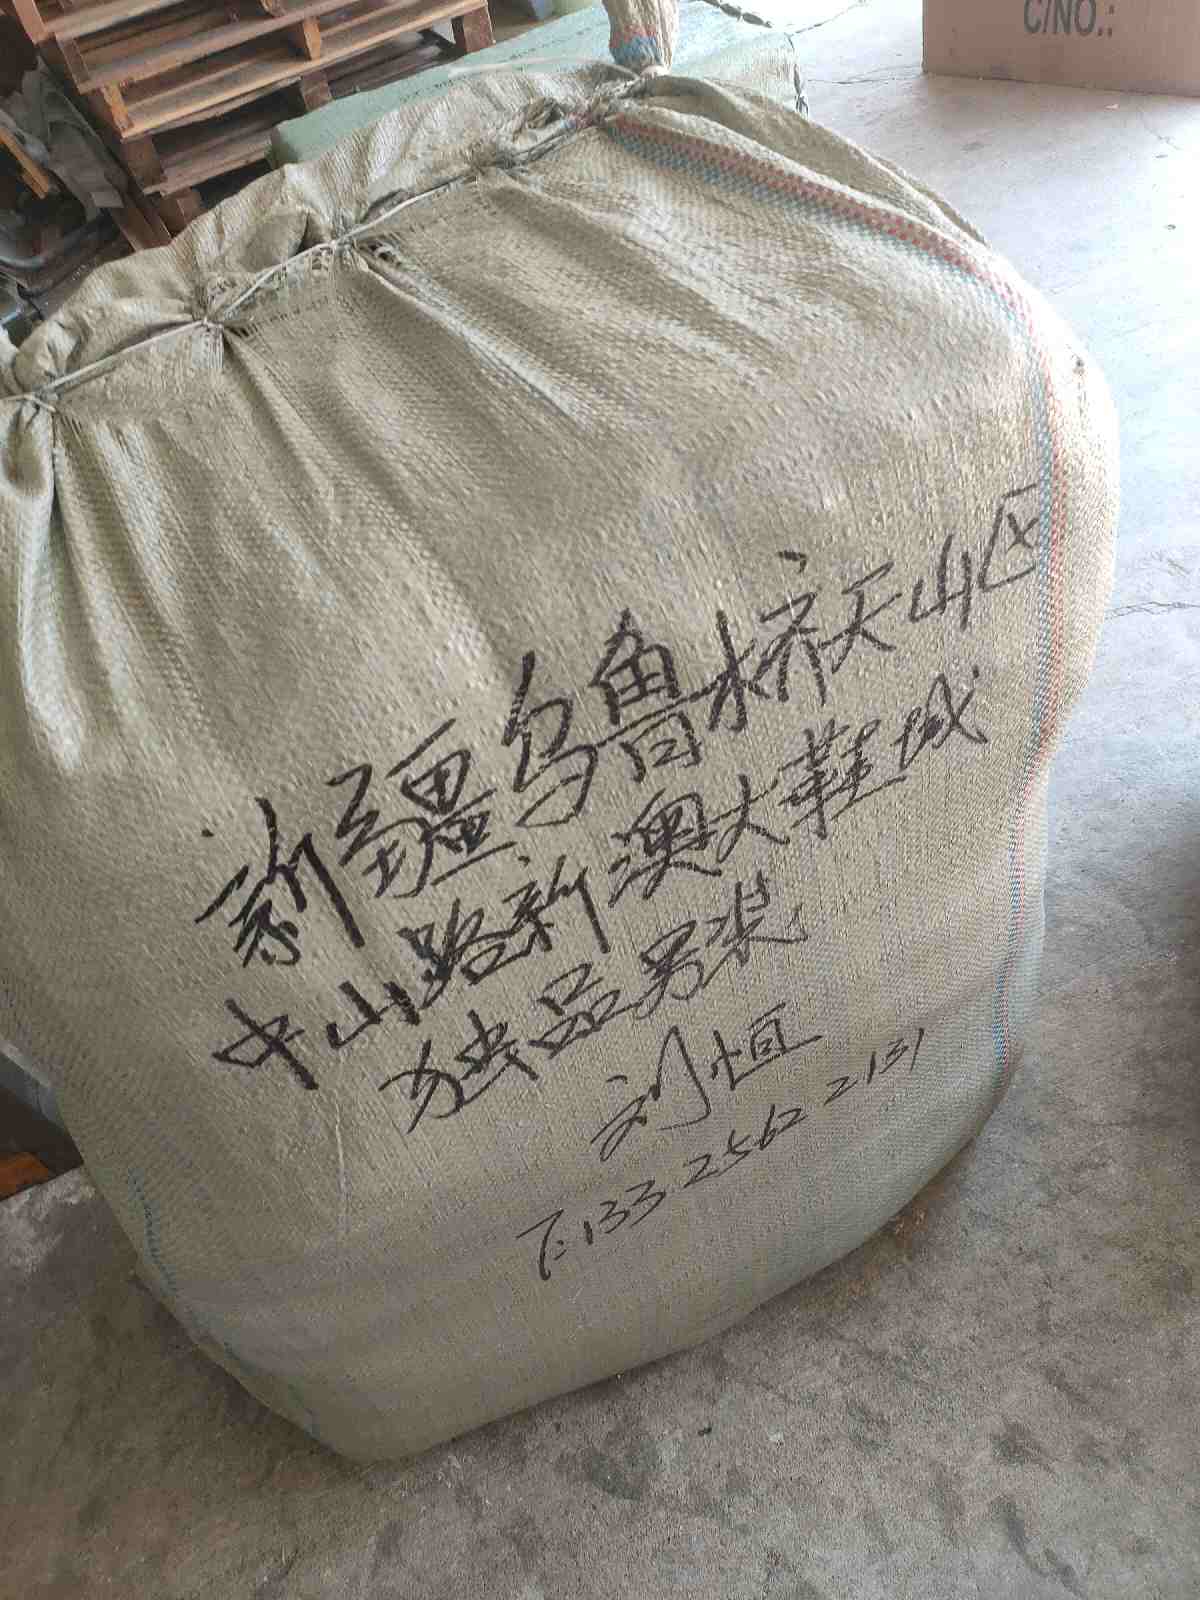 C/NO.:
新疆乌鲁木齐天山区
中山路新澳大鞋城
独品男装
刘恒
T:133 2562 2131